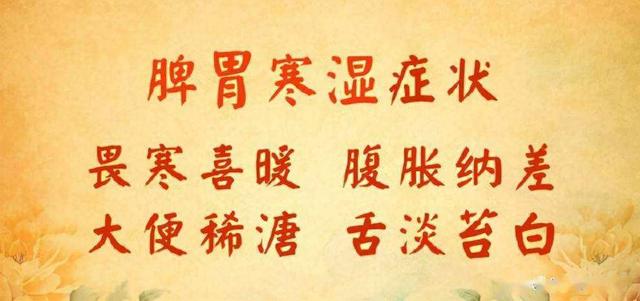 脾胃寒湿症状
畏寒喜暖 腹胀纳差
大便稀溏 舌淡苔白